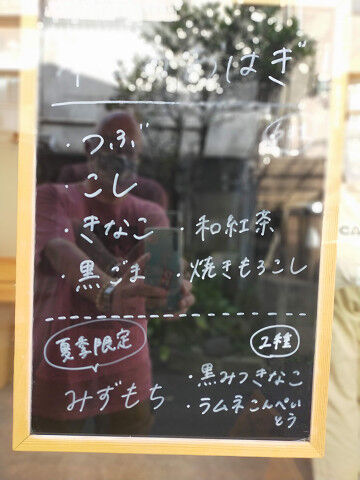 はぎ
・つぶ
・こし
・きなこ ・和紅茶
・黒ごま ・焼きもろこし
夏季限定 2種
みずもち
・黒みつきなこ
・ラムネこんぺい
とう